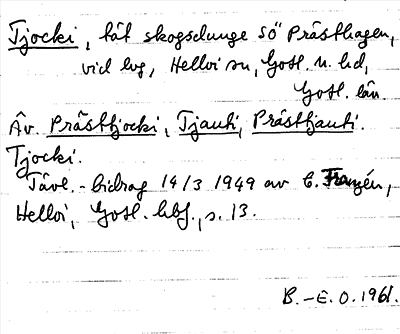 Tjocki, tät skogsdunge sö Prästhagen,
vid lvg, Hellvi sn, Gotl. n. hd,
Gotl. län.
Äv. Prästtjocki, Tjauki, Prästtjauki.
Tjocki.
Tävl.-bidrag 14/3 1949 av C. Franzén,
Hellvi, Gotl. hbf., s. 13.
B.-E. O. 1961.